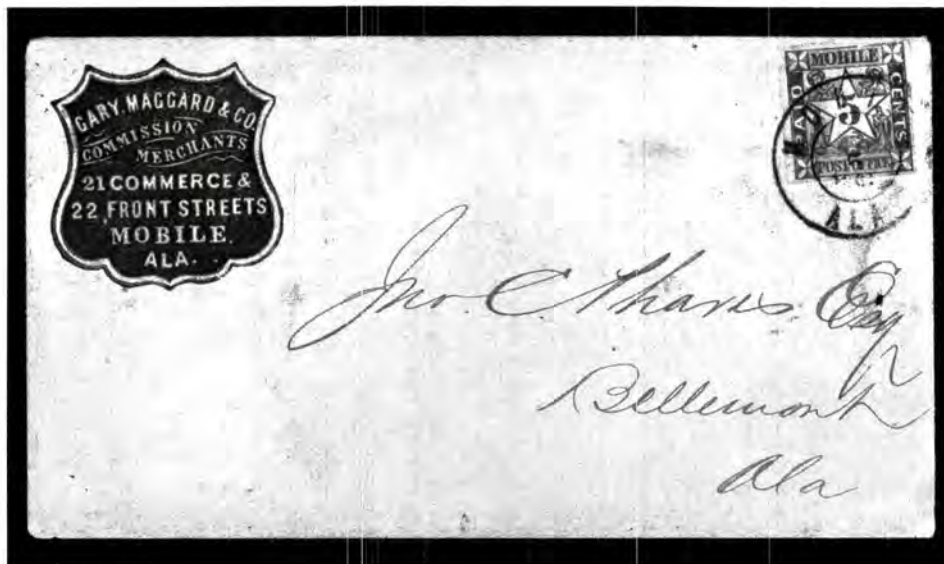 GARY, MAGGARD & CO.
COMMISSION
MERCHANTS
21 COMMERCE &
22 FRONT STREETS
MOBILE.
ALA.
MOBILE
PAID
5
CENTS
POST OFFICE
ALA
Jno. C. Esq
Bellemont
Ala